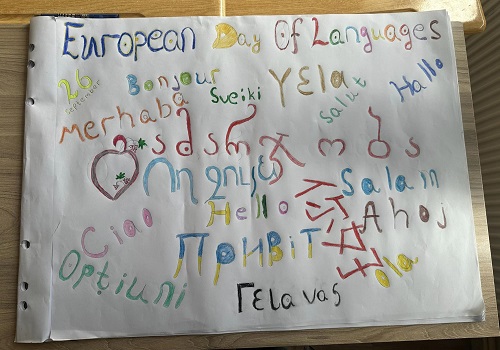 European Day Of Languages
26
September
Bonjour
Sveiki
YEla
Salut
Hallo
Merhaba
გამარჯობა
Ողջույն
Salam
Hello
Ahoj
Ciao
Привіт
ola
Opțiuni
Γεla vas